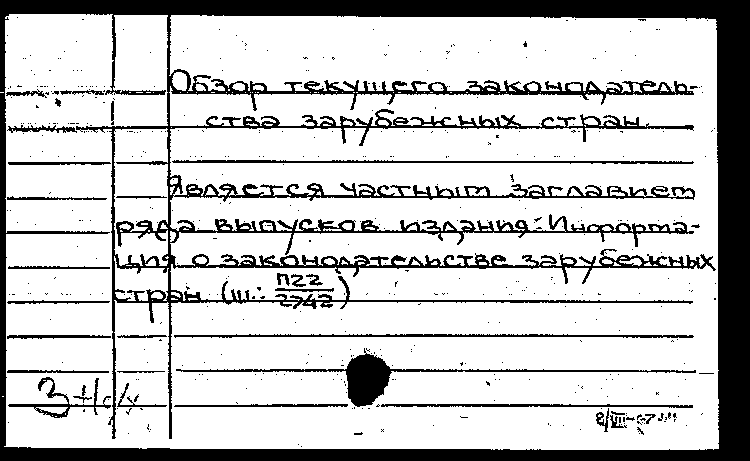 Обзор текущего законодатель-
ства зарубежных стран.
Является частным заглавием
ряда выпусков издания: Информа-
ция о законодательстве зарубежных
стран (ш.: П22
2742)